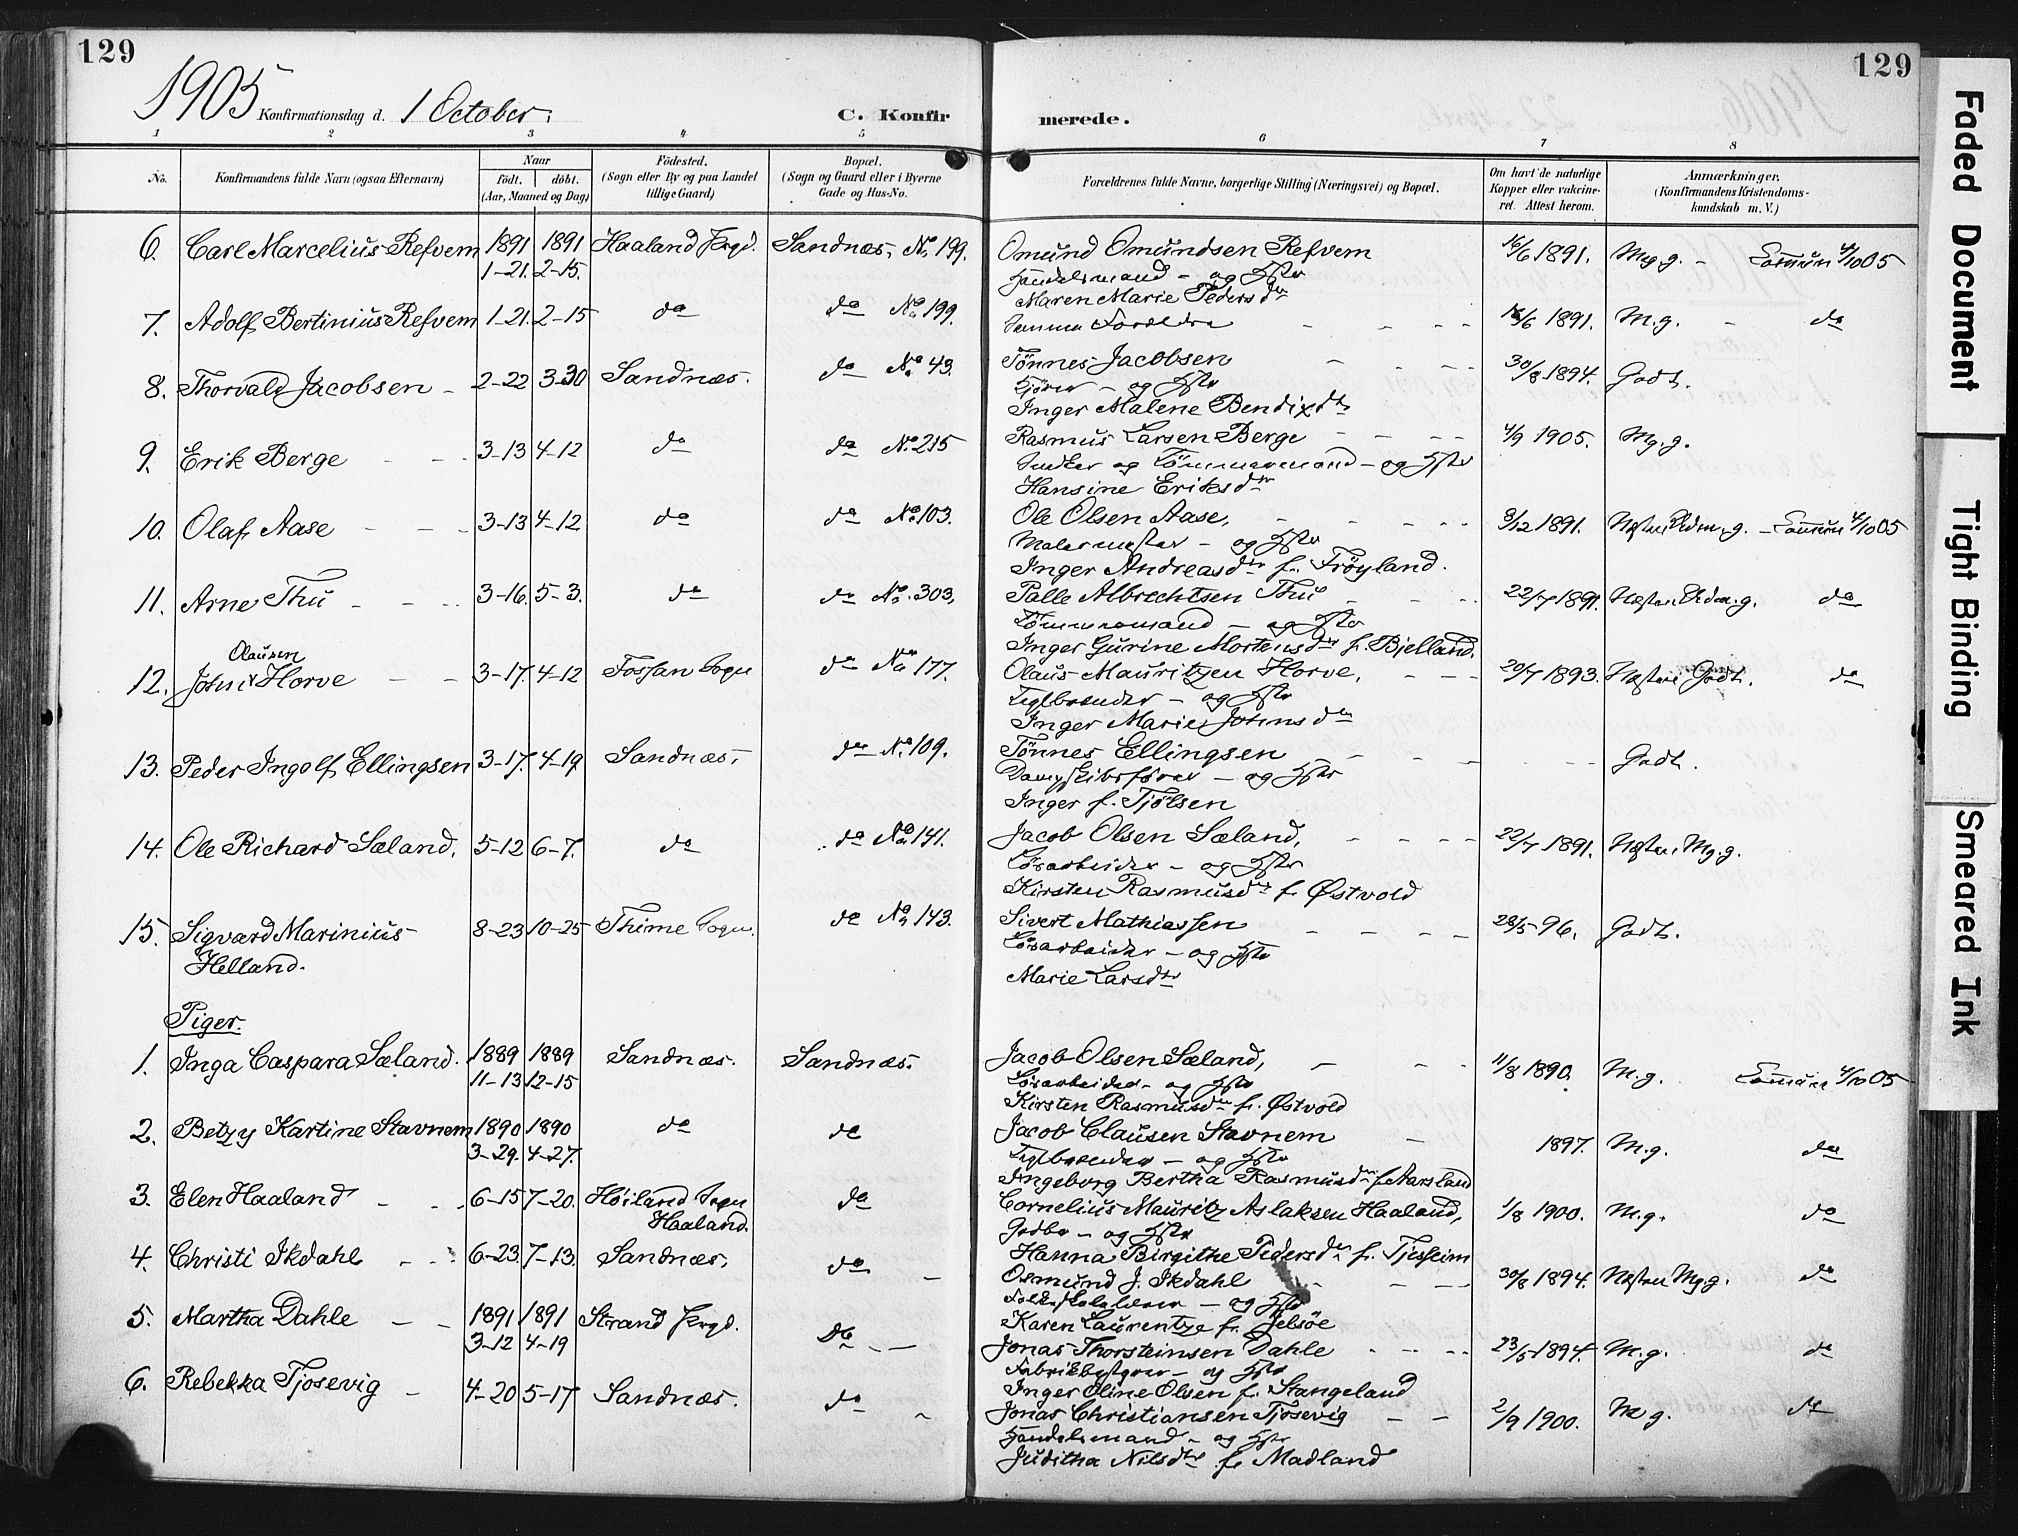 129
129
1905 Konfirmationsdag d. 1 October.
C. Konfirmerede.
1 2 3 4 5 6 7 8
No.
Konfirmandens fulde Navn (ogsaa Efternavn)
Naar
født. døbt.
(Aar, Maaned og Dag)
Födested.
(Sogn eller By og paa Landet
tillige Gaard)
Bopæl.
(Sogn og Gaard eller i Byerne
Gade og Hus-No.
Forældrenes fulde Navne, borgerlige Stilling (Næringsvei) og Bopæl.
Om havt de naturlige
Kopper eller vakcine-
ret. Attest herom.
Anmærkninger.
(Konfirmandens Kristendoms-
kundskab m. V.)
6. Carl Marcelius Refvem 1891 1891 Haaland Prgd. Sandnæs, No 199. Omund Omundsen Refvem 16/6 1891. Mg.g. 4/10 05
1-21. 2-15. Handelsmand - og Hstr
Maren Marie Pedersdtr
7. Adolf Bertinius Refvem 1-21. 2-15 do do No 199. Samme Forældre 16/6 1891. M.g. do
8. Thorvald Jacobsen 2-22 3-30 Sandnæs. do No 43. Tønnes Jacobsen 30/8 1894. Godt.
Kjører - og Hstr
Inger Malene Bendixdtr
9. Erik Berge 3-13 4-12 do do No 215 Rasmus Larsen Berge 4/9 1905. Mg.g.
Snedker og Tømmermand - og Hstr
Hansine Eriksdtr
10. Olaf Aase 3-13 4-12 do do No 103. Ole Olsen Aase, 8/12 1891. 4/10 05
Malermester - og Hstr
Inger Andreasdtr f. Frøyland.
11. Arne Thu 3-16. 5-3. do do No 303, Palle Albrechtsen Thu 22/7 1891. do
Tømmermand - og Hstr
Inger Gurine Mortensdtr f. Bjelland.
Olausen
12. John Horve 3-17. 4-12 Fossan Sogn do No 177. Olaus Mauritzen Horve, 20/7 1893. Næsten Godt. do
Teglbrænder - og Hstr
Inger Marie Johnsdtr
13. Peder Ingolf Ellingsen 3-17. 4-19 Sandnæs, do No 109. Tønnes Ellingsen Godt.
Dampskibsfører - og Hstr
Inger f. Tjølsen
14. Ole Richard Sæland. 5-12 6-7. do do No 141. Jacob Olsen Sæland, 22/7 1891. Næsten Mg.g.
Løsarbeider - og Hstr
Kirsten Rasmusdtr f. Østvold
15. Sigvard Marinius 8-23 10-25 Thime Sogn. do No 143. Sivert Mathiassen 28/5-96. Godt.
Helland. Løsarbeider - og Hstr
Marie Larsdtr
Piger.
1. Inga Caspara Sæland. 1889 1889 Sandnæs. Sandnæs. Jacob Olsen Sæland, 11/8 1890. M.g. 4/10 05
11-13 12-15 Løsarbeider - og Hstr
Kirsten Rasmusdtr f. Østvold
2. Betzy Kartine Stavnem 1890 1890 do do Jacob Clausen Stavnem 1897. M.g. do
3-29. 4-27. Teglbrænder - og Hstr
Ingeborg Bertha Rasmusdtr f. Aarsland
3. Elen Haaland 6-15 7-20. Høiland Sogn do Cornelius Mauritz Aslaksen Haaland, 1/8 1900. M.g. do
Haaland. Gdbr - og Hstr
Hanna Birgithe Pedersdtr f. Tjessem
4. Christi Ikdahl 6-23. 7-13. Sandnæs. do Osmund J. Ikdahl 30/8 1894. Næsten Mg.g. do
Folkeskolelærer - og Hstr
Karen Laurentze f. Jelsøe
5. Martha Dahle 1891 1891 Strand Prgd. do Jonas Thorsteinsen Dahle 23/5 1894. M.g. do
3-12 4-19 Fabrikbestyrer - og Hstr
Inger Oline Olsen f. Stangeland
6. Rebekka Tjosevig 4-20 5-17 Sandnæs. do Jonas Christiansen Tjosevig 2/9 1900. M g. do
Handelsmand - og Hstr
Juditha Nilsdtr f. Madland
Faded Document
Tight Binding
Smeared Ink